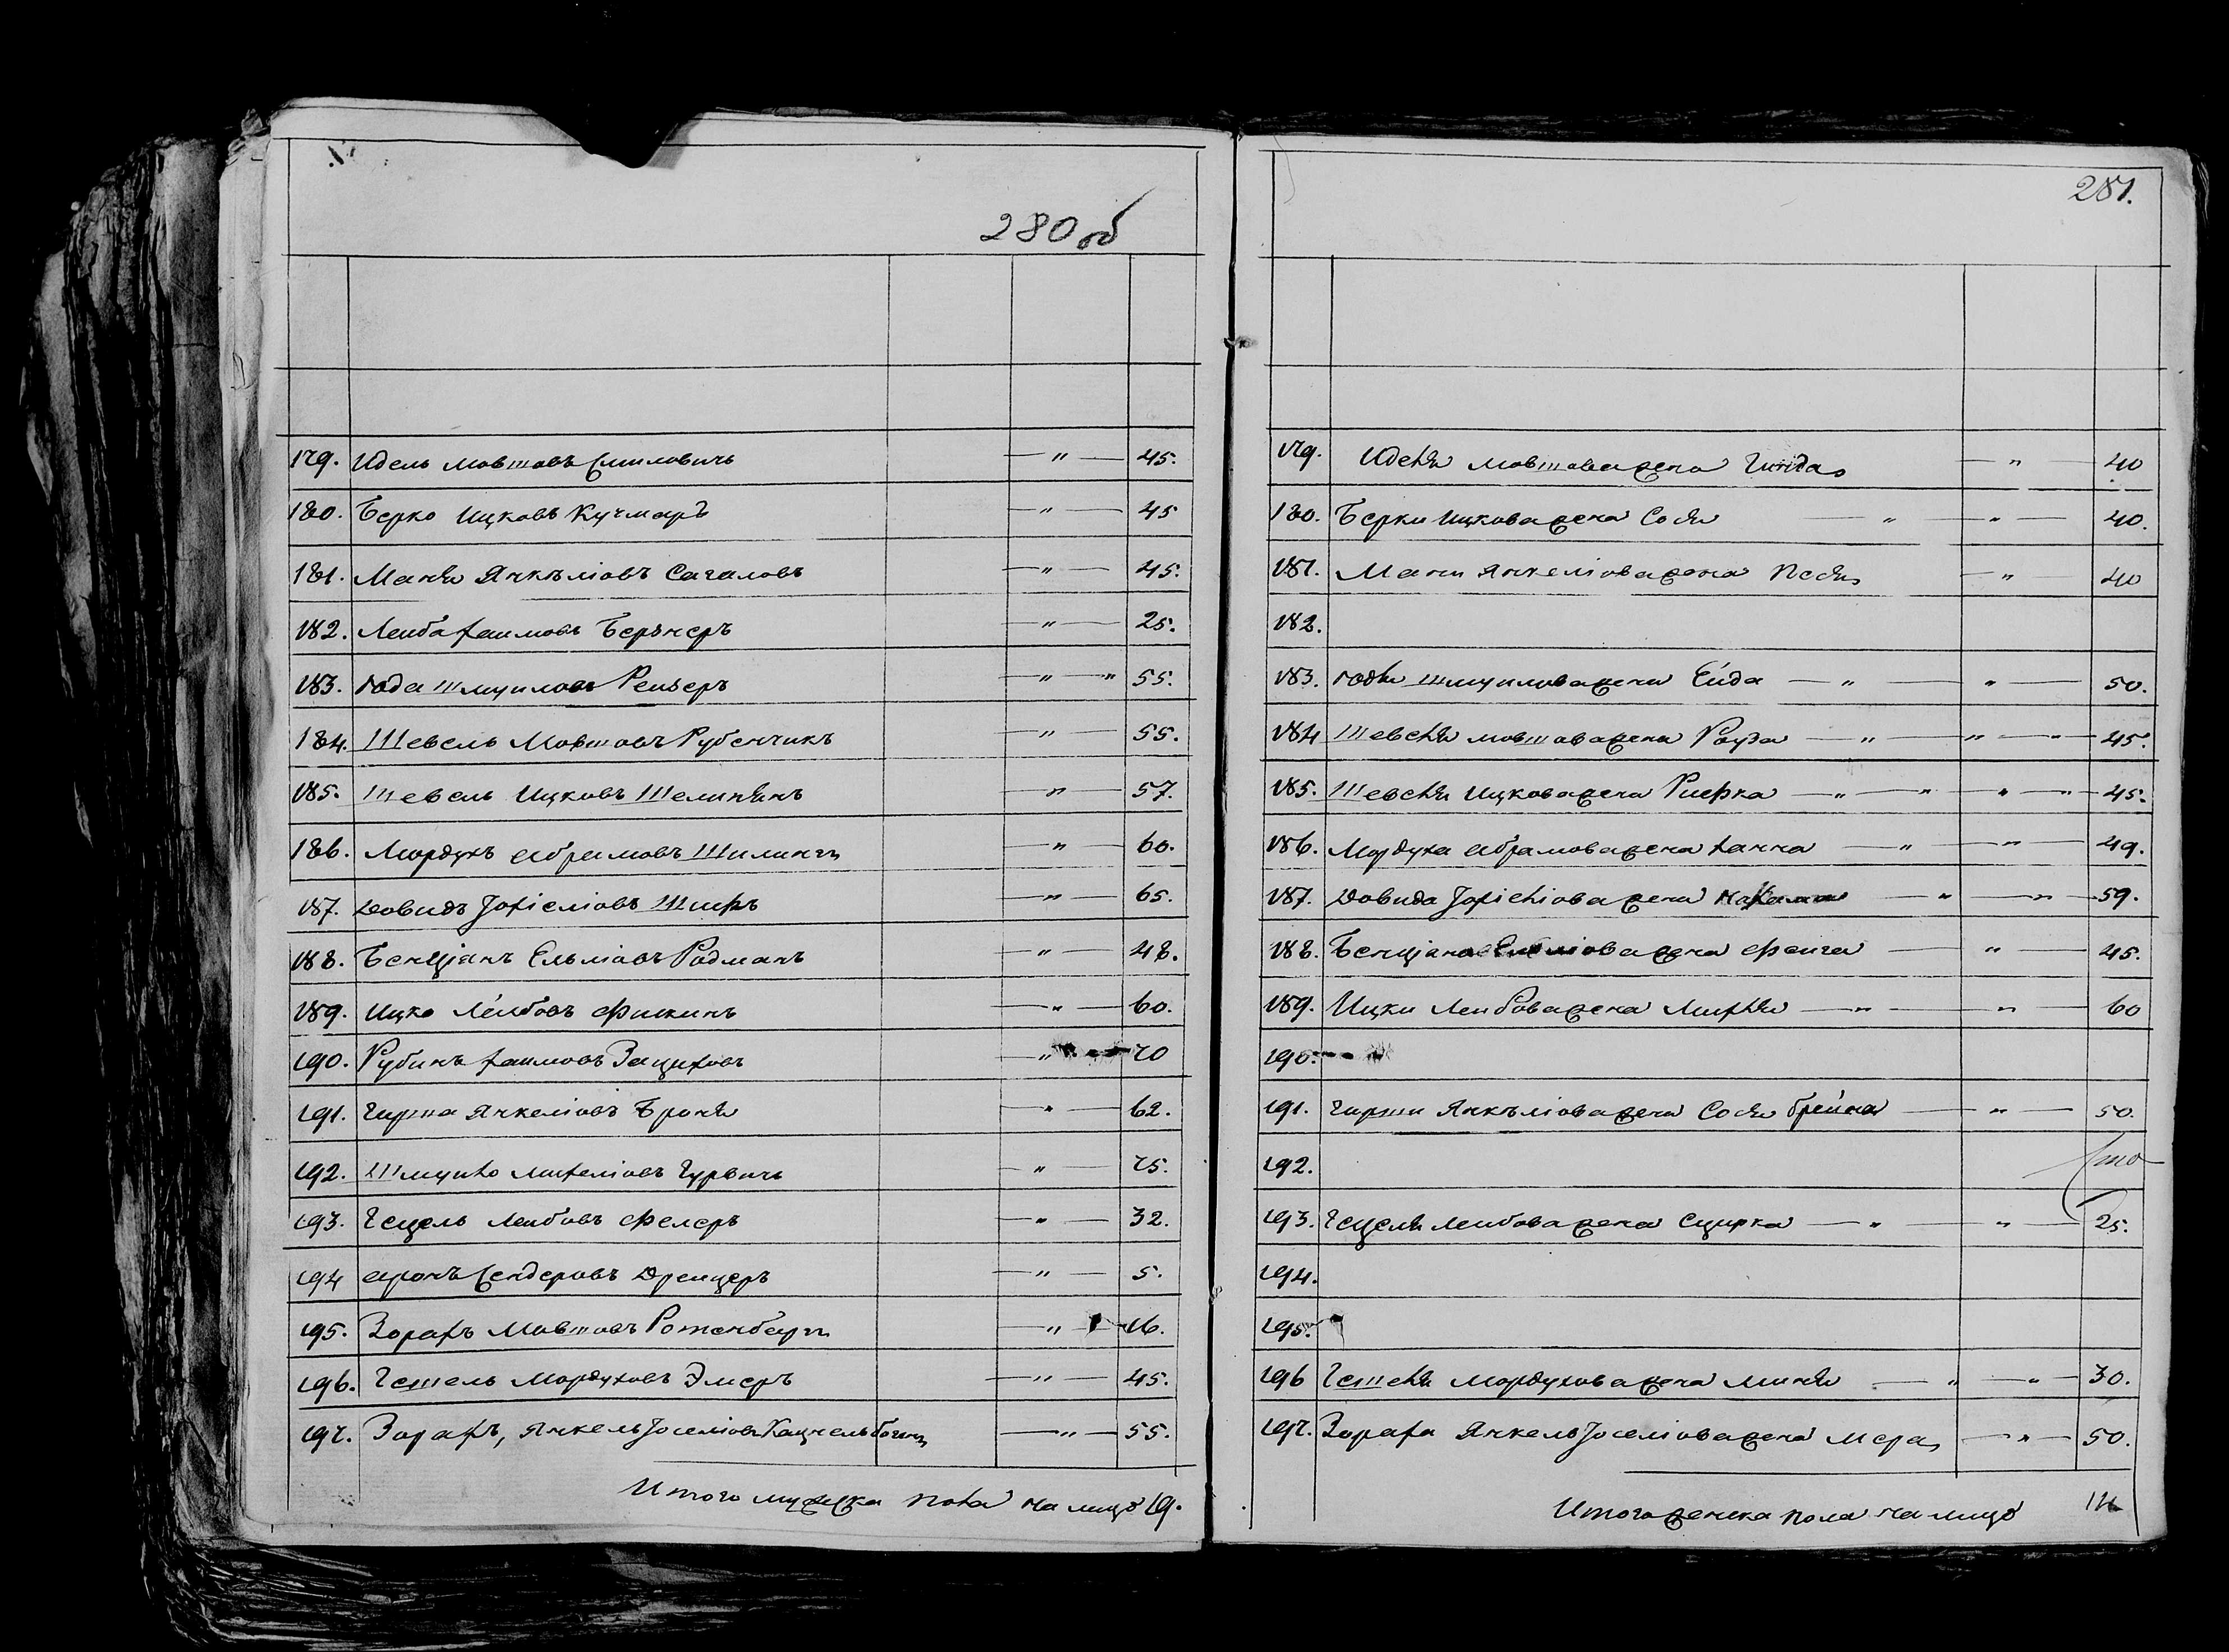 280 об
179. Идель Мовшовъ Смиловичь — " — 45.
180. Берко Ицковъ Кучмаръ — " — 45
181. Маня Янкеліовъ Сагаловъ — " — 45.
182. Лейба Хаимовъ Бернеръ — " — 25.
183. Года Шмуиловъ — " — " 55.
184. Шевель Мовшовъ Рубенчикъ — " — 55.
185. Шевель Ицковъ — " — 57.
186. Мордухъ Абрамовъ — " — 60.
187. Довидъ Іохіеліовъ Шифъ — " — 65.
188. Бенціянъ Ельліовъ Родманъ — " — 48.
189. Ицко Лейбовъ Фишкинъ — " — 60.
190. Рубинъ Хаимовъ — " — 70
191. Гирша Янкеліовъ Броня — " — 62.
192. Шмуйло Михеліовъ Гурвичь — " — 75.
193. Гецель Лейбовъ Фелеръ — " — 32.
194 Аронъ Сендеровъ Дрейцеръ — " — 5.
195. Зорахъ Мовшовъ Ротенбергъ — " — 16.
196. Гешель Мордуховъ Элмеръ — " — 45.
197. Зорахъ, Янкель Іоселіовъ Каценельбогинъ — " — 55.
Итого мужеска пола на лицо 19.
281.
179. Иделя Мовшова жена Гинда — " — 40
180. Берки Ицкова жена Соя " — " — 40.
181. Мани Янкеліова жена Песя — " — 40
182.
183. Годы Шмуилова жена Гида — " — " — 50.
184 Шевеля Мовшова жена Роуза — " — " — " — 45.
185. Шевеля Ицкова жена Рифка — " — " — " — " — 45.
186. Мордуха Абрамова жена Ханна — " — " — 49.
187. Довида Іохіеліова жена — " — " — 59.
188. Бенціана Ельліова жена Фейга — " — 45.
189. Ицки Лейбова жена Михля — " — " — 60
190.
191. Гирши Янкеліова жена Соя Брейна — " — 50.
192.
193. Гецеля Лейбова жена Сцирка — " — " — 25.
194.
195.
196 Гешеля Мордухова жена Миня — " — " — 30.
197. Зораха Янкель Іоселіова жена Мера — " — 50.
Итого женска пола на лицо 14